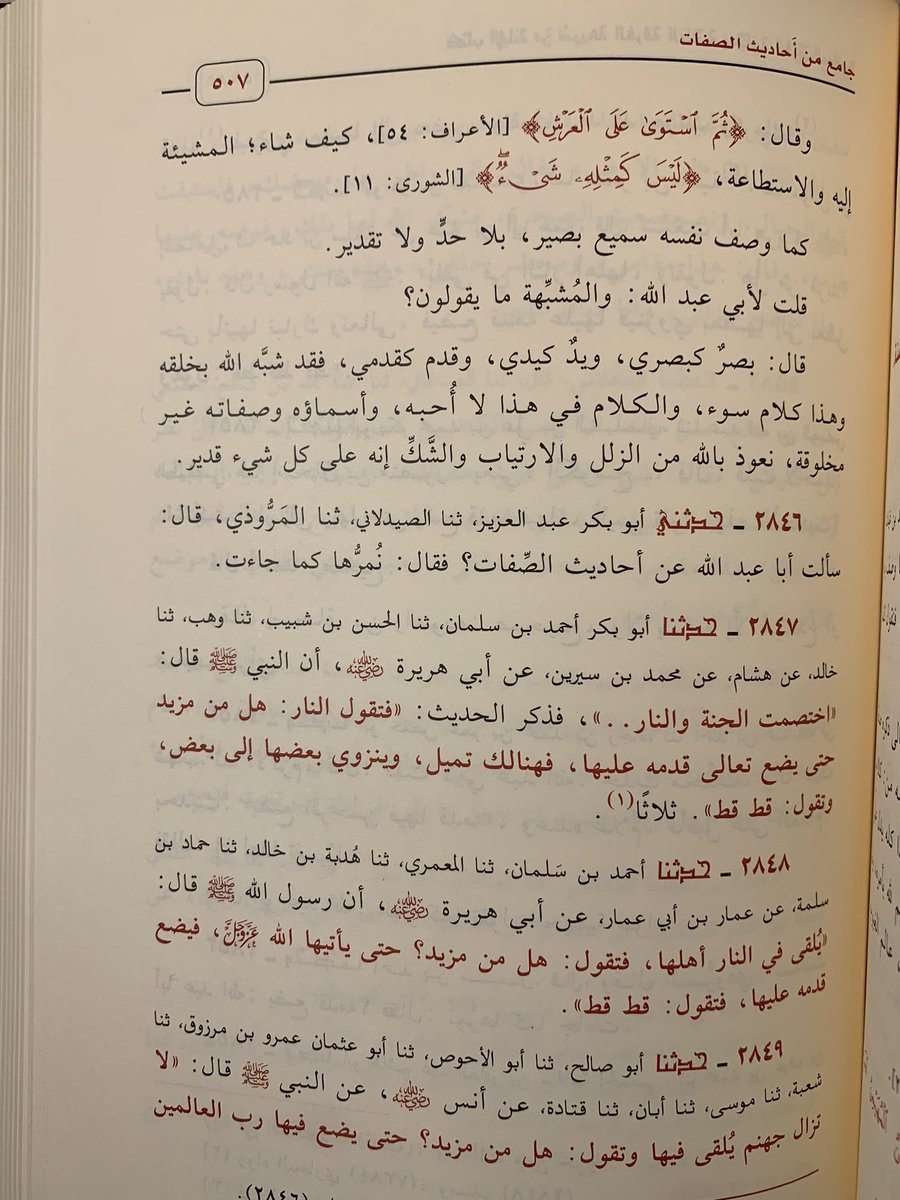 جامع من أحاديث الصفات
٥٠٧
وقال: ﴿ثُمَّ ٱسْتَوَىٰ عَلَى ٱلْعَرْشِ﴾ [الأعراف: ٥٤]، كيف شاء؛ المشيئة
إليه والاستطاعة، ﴿لَيْسَ كَمِثْلِهِۦ شَىْءٌۖ﴾ [الشورى: ١١].
كما وصف نفسه سميع بصير، بلا حدٍّ ولا تقدير.
قلت لأبي عبد الله: والمُشبِّهة ما يقولون؟
قال: بصرٌ كبصري، ويدٌ كيدي، وقدم كقدمي، فقد شبَّه الله بخلقه
وهذا كلام سوء، والكلام في هذا لا أُحبه، وأسماؤه وصفاته غير
مخلوقة، نعوذ بالله من الزلل والارتياب والشَّكِّ إنه على كل شيء قدير.
٢٨٤٦ ـ حدثني أبو بكر عبد العزيز، ثنا الصيدلاني، ثنا المَرُّوذي، قال:
سألت أبا عبد الله عن أحاديث الصِّفات؟ فقال: نُمرُّها كما جاءت.
٢٨٤٧ ـ حدثنا أبو بكر أحمد بن سلمان، ثنا الحسن بن شبيب، ثنا وهب، ثنا
خالد، عن هشام، عن محمد بن سيرين، عن أبي هريرة رضي الله عنه، أن النبي ﷺ قال:
«اختصمت الجنة والنار..»، فذكر الحديث: «فتقول النار: هل من مزيد
حتى يضع تعالى قدمه عليها، فهنالك تميل، وينزوي بعضها إلى بعض،
وتقول: قط قط». ثلاثًا(١).
٢٨٤٨ ـ حدثنا أحمد بن سَلمان، ثنا المعمري، ثنا هُدبة بن خالد، ثنا حماد بن
سلمة، عن عمار بن أبي عمار، عن أبي هريرة رضي الله عنه، أن رسول الله ﷺ قال:
«يُلقى في النار أهلها، فتقول: هل من مزيد؟ حتى يأتيها الله عز وجل، فيضع
قدمه عليها، فتقول: قط قط».
٢٨٤٩ ـ حدثنا أبو صالح، ثنا أبو الأحوص، ثنا أبو عثمان عمرو بن مرزوق، ثنا
شعبة، ثنا موسى، ثنا أبان، ثنا قتادة، عن أنس رضي الله عنه، عن النبي ﷺ قال: «لا
تزال جهنم يُلقى فيها وتقول: هل من مزيد؟ حتى يضع فيها رب العالمين
(٢٨٤٦).